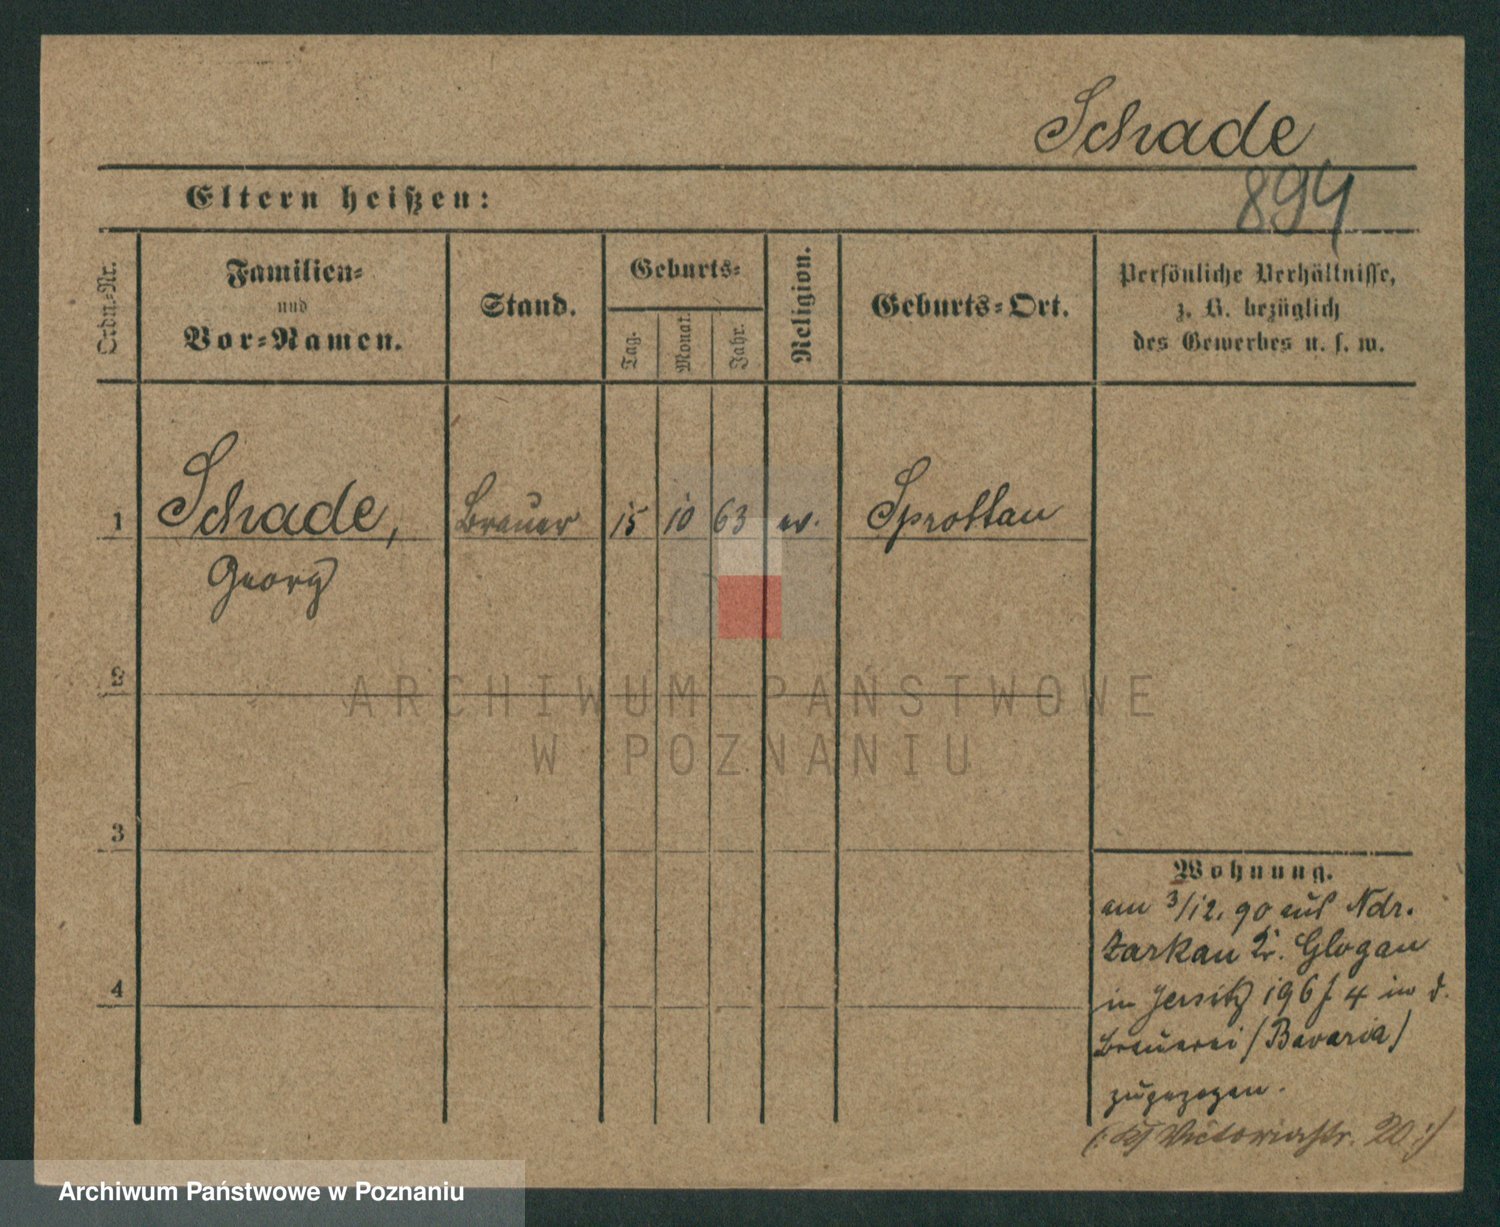 Schade
894
Eltern heißen:
Ordn.-Nr.
Familien-
und
Vor-Namen.
Stand.
Geburts-
Tag.
Monat.
Jahr.
Religion.
Geburts-Ort.
Persönliche Verhältnisse,
z. B. bezüglich
des Gewerbes u. s. w.
1 Schade, Brauer 15 10 63 ev. Sprottau
Georg
2
ARCHIWUM PAŃSTWOWE
W POZNANIU
3
Wohnung.
am 3/12. 90 aus Ndr.
Zarkau Kr. Glogau
4
in Jersitz 196 4 in d.
Brauerei (Bavaria)
zugezogen.
Victoriastr. 20
Archiwum Państwowe w Poznaniu